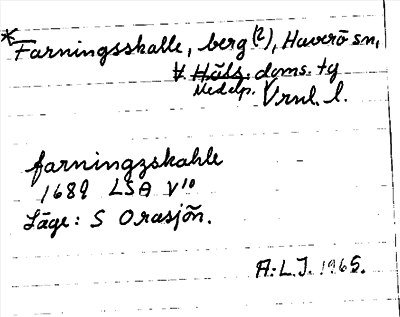 *Farningsskalle, berg (?), Haverö sn,
V Häls. doms. tg
Medelp. Vrnl. l.
farningzskahle
1689 LSA V10
Läge: S Orasjön.
A:L.J. 1965.